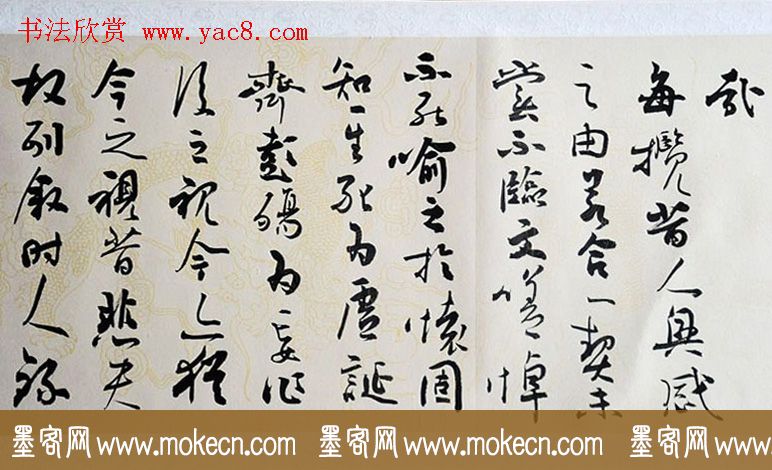 书法欣赏 www.yac8.com
哉
每攬昔人興感
之由若合一契未
嘗不臨文嗟悼
不能喻之於懷固
知一生死为虛誕
齊彭殤为妄作
後之視今亦猶
今之視昔悲夫
故列敘时人錄
墨客网 www.mokecn.com 墨客网 www.mokecn.com 墨客网 www.mokecn.com